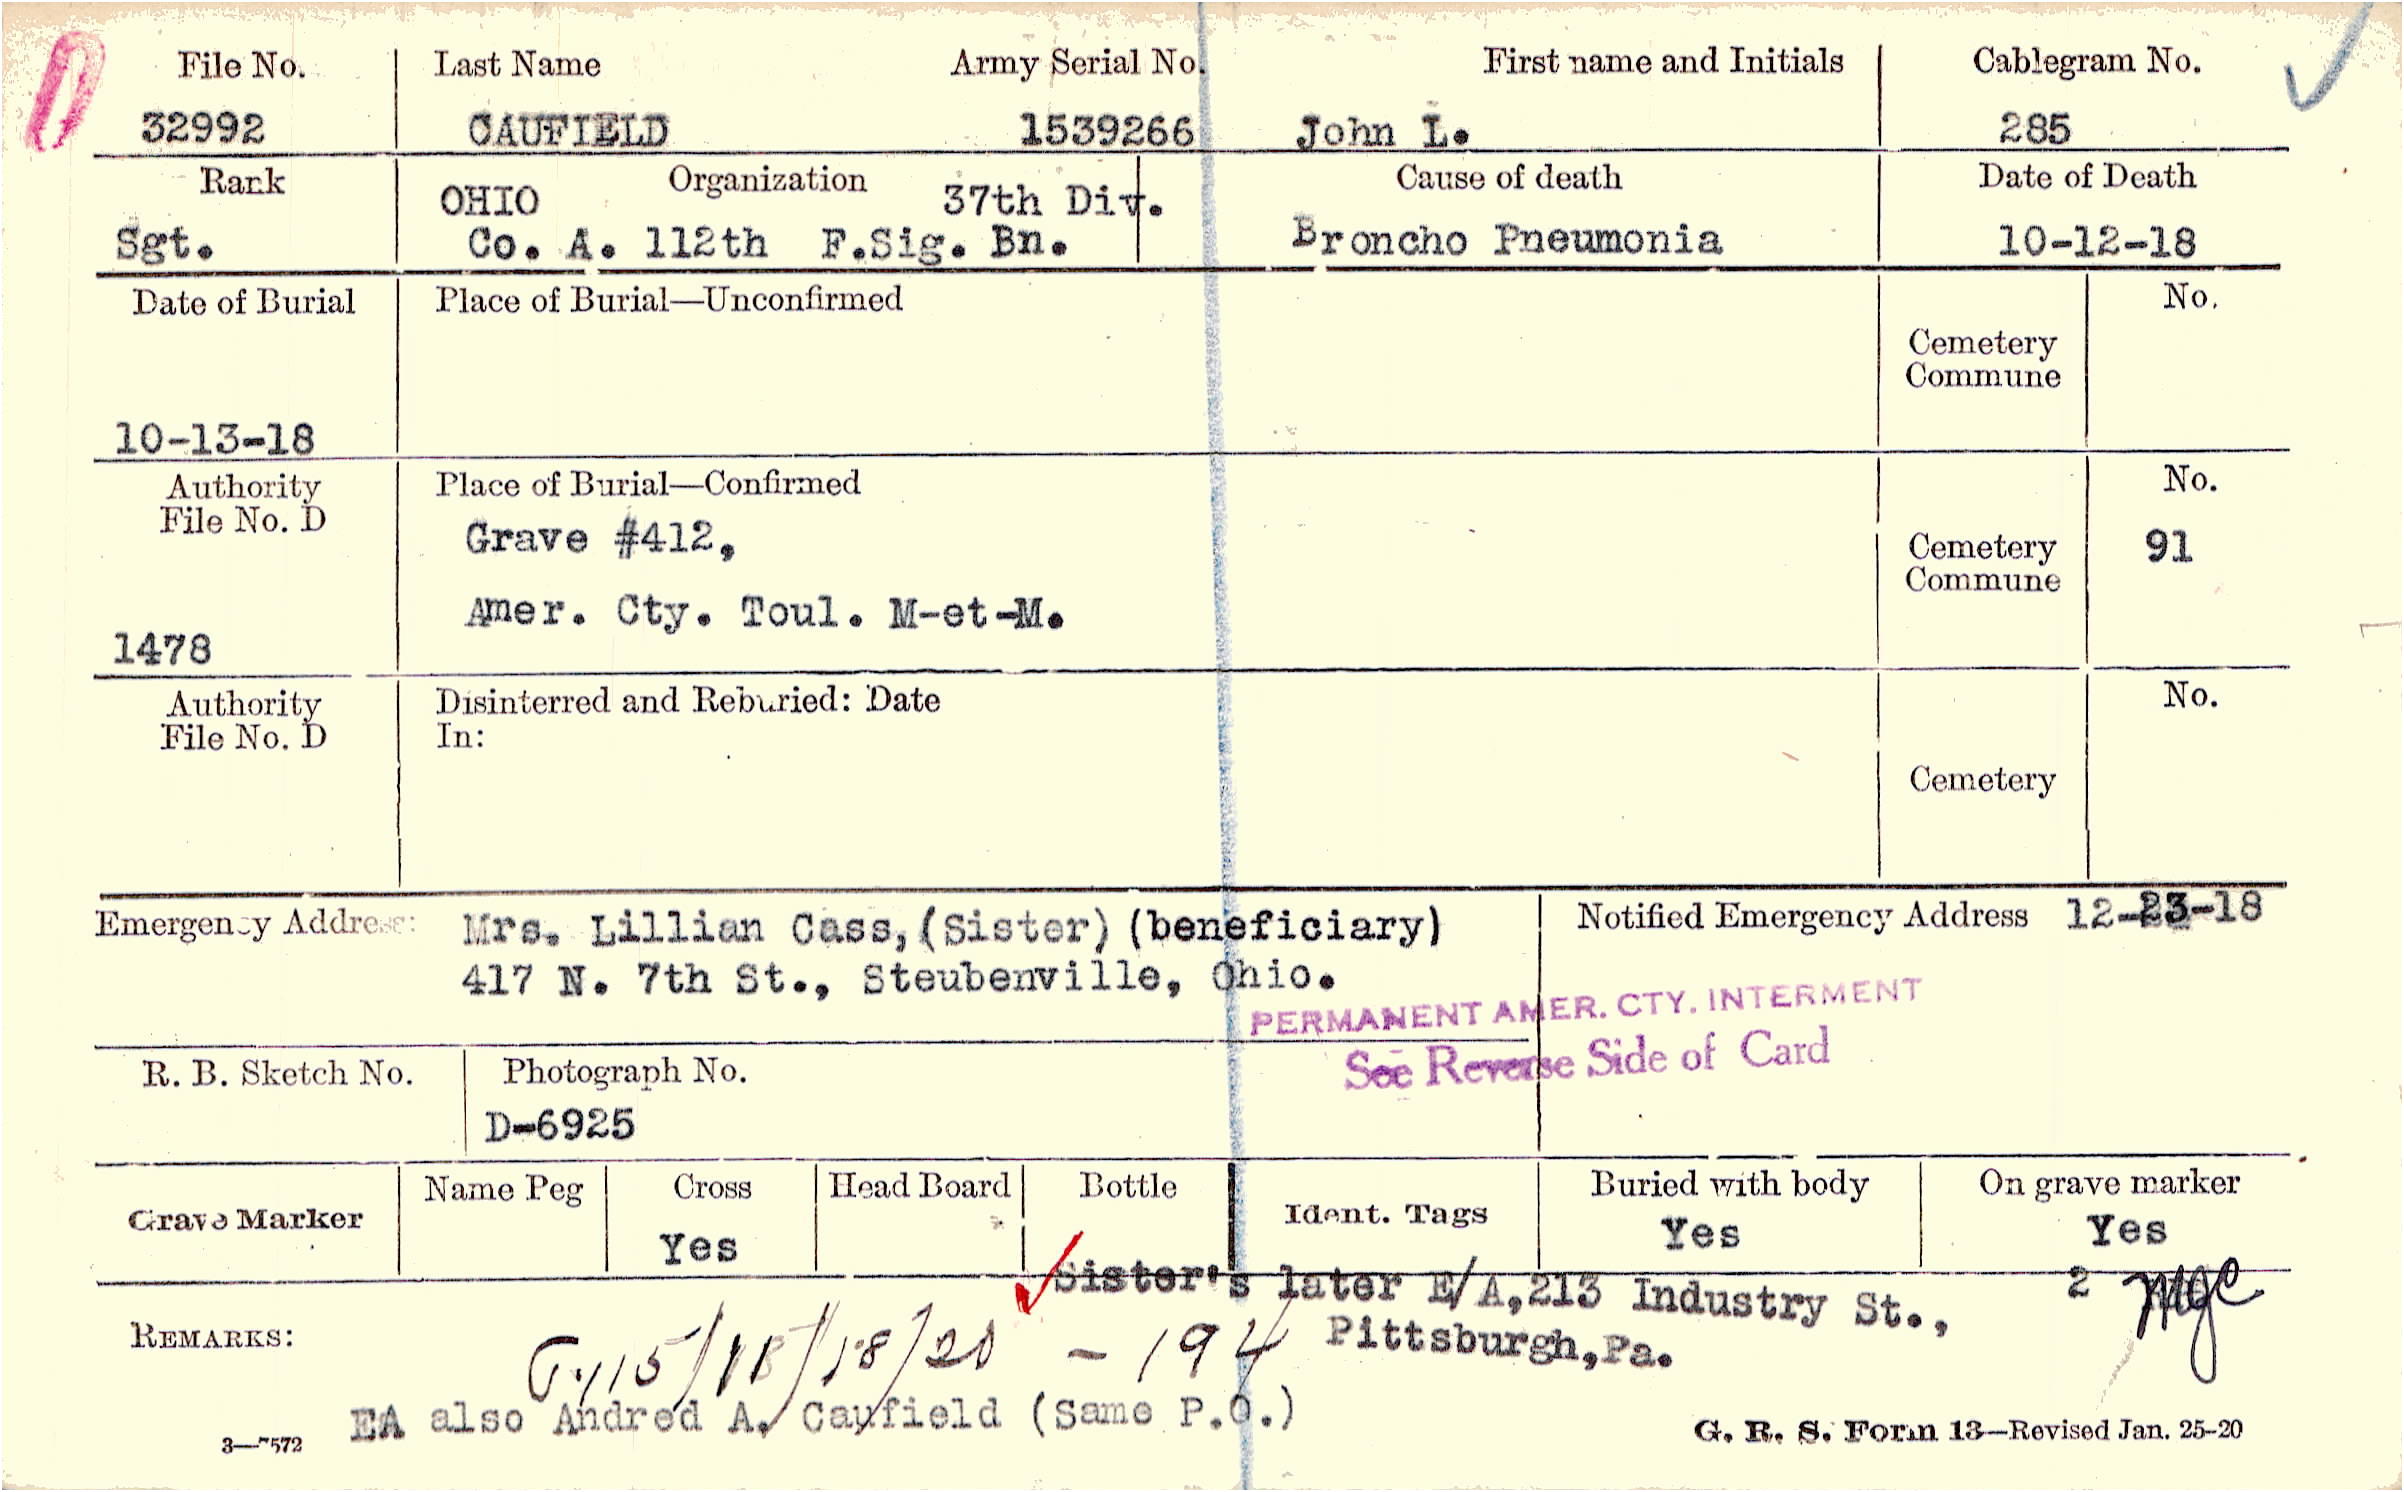 File No. Last Name Army Serial No. First name and Initials Cablegram No.
32992 CAUFIELD 1539266 John L. 285
Rank Organization Cause of death Date of Death
OHIO 37th Div.
Sgt. Co. A. 112th F.Sig. Bn. Broncho Pneumonia 10-12-18
Date of Burial Place of Burial—Unconfirmed No.
Cemetery
Commune
10-13-18
Authority Place of Burial—Confirmed No.
File No. D
Grave #412, Cemetery 91
Commune
Amer. Cty. Toul. M-et-M.
1478
Authority Disinterred and Reburied: Date No.
File No. D In:
Cemetery
Emergency Address: Mrs. Lillian Cass, (Sister) (beneficiary) Notified Emergency Address 12-23-18
417 N. 7th St., Steubenville, Ohio.
PERMANENT AMER. CTY. INTERMENT
See Reverse Side of Card
R. B. Sketch No. Photograph No.
D-6925
Grave Marker Name Peg Cross Head Board Bottle Ident. Tags Buried with body On grave marker
Yes Yes Yes
Sister's later E/A, 213 Industry St., 2
Pittsburgh, Pa.
REMARKS: /18/20 - 194
EA also Andred A. Caufield (Same P.O.)
3—7572 G. R. S. Form 13—Revised Jan. 25-20